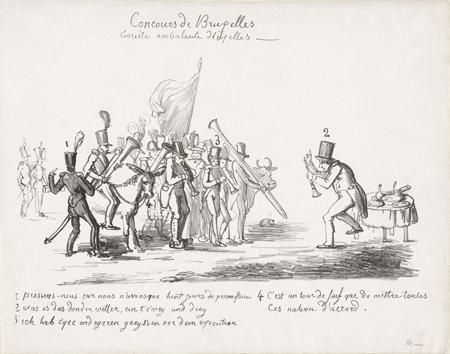 Concours de Bruxelles
Société ambulante d'Ixelles
1
2
3
1 pressons-nous car nous n'avons que huit jours de permission.
2 was is das donder willer, ein t'swey und drey
3 ick hab eyer ond eyeren geeyssen vor dem execution.
4 C'est un tour de juif que de mettre toutes
Ces nation d'accord.